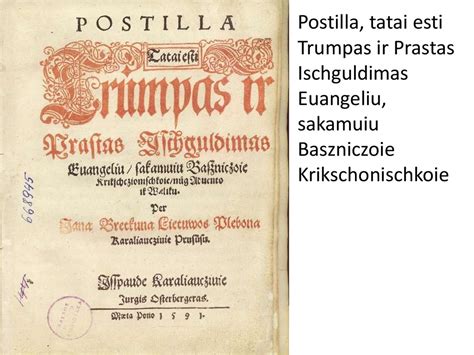 POSTILLA
Tatai esti
Trumpas ir
Prastas Ischguldimas
Euangeliu / sakamuiu Baszniczoie
Krikschczionischkoie / nůg Aduento
ik Waliku.
Per
Jana Bretkuna Lietuwos Plebona
Karaliaucziuie Prusůsu.
Isspaude Karaliaucziuie
Jurgis Osterbergeras.
Mæta Pono 1591.
668945
Postilla, tatai esti
Trumpas ir Prastas
Ischguldimas
Euangeliu,
sakamuiu
Baszniczoie
Krikschonischkoie